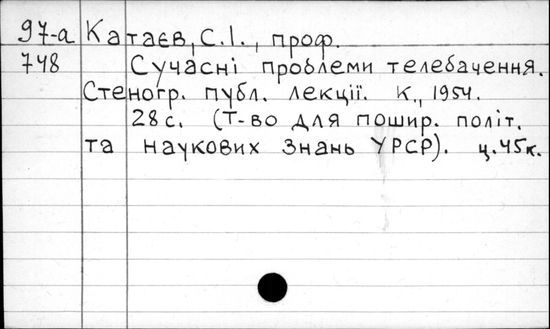 97-а Катаєв, С.І., проф.
748 Сучасні проблеми телебачення.
Стеногр. публ. лекції. К., 1954.
28 с. (Т-во для пошир. політ.
та наукових знань УРСР). ц. 45к.